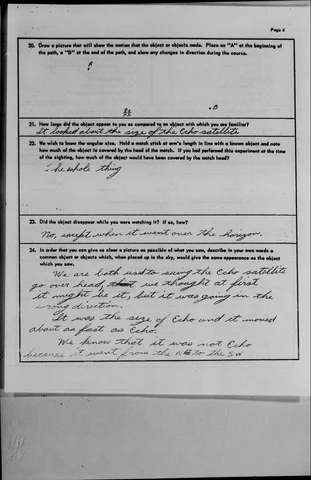 Page 4
20. Draw a picture that will show the motion that the object or objects made. Place an "A" at the beginning of
the path, a "B" at the end of the path, and show any changes in direction during the course.
A
B
21. How large did the object appear to you as compared to an object with which you are familiar?
It looked about the size of the Echo satellite
22. We wish to know the angular size. Hold a match stick at arm's length in line with a known object and note
how much of the object is covered by the head of the match. If you had performed this experiment at the time
of the sighting, how much of the object would have been covered by the match head?
The whole thing
23. Did the object disappear while you were watching it? If so, how?
No, except when it went over the horizon.
24. In order that you can give as clear a picture as possible of what you saw, describe in your own words a
common object or objects which, when placed up in the sky, would give the same appearance as the object
which you saw.
We are both used to seeing the Echo satellite
go over head, we thought at first
it might be it, but it was going in the
wrong direction.
It was the size of Echo and it moved
about as fast as Echo.
We know that it was not Echo
because it went from the NE to the SW